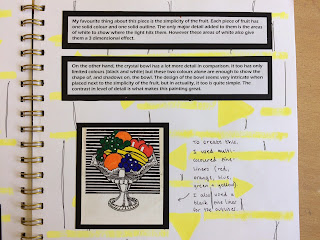 My favourite thing about this piece is the simplicity of the fruit. Each piece of fruit has
one solid colour and one solid outline. The only major detail added to them is the areas
of white to show where the light hits them. However these areas of white also give
them a 3 dimensional effect.
On the other hand, the crystal bowl has a lot more detail in comparison. It too has only
limited colours (black and white) but these two colours alone are enough to show the
shape of, and shadows on, the bowl. The design of the bowl seems very intricate when
placed next to the simplicity of the fruit, but in actuality, it too is quite simple. The
contrast in level of detail is what makes this painting great.
To create this,
I used multi-
coloured fine
liners (red,
orange, blue,
green & yellow)
I also used a
black fine liner
for the outlines.